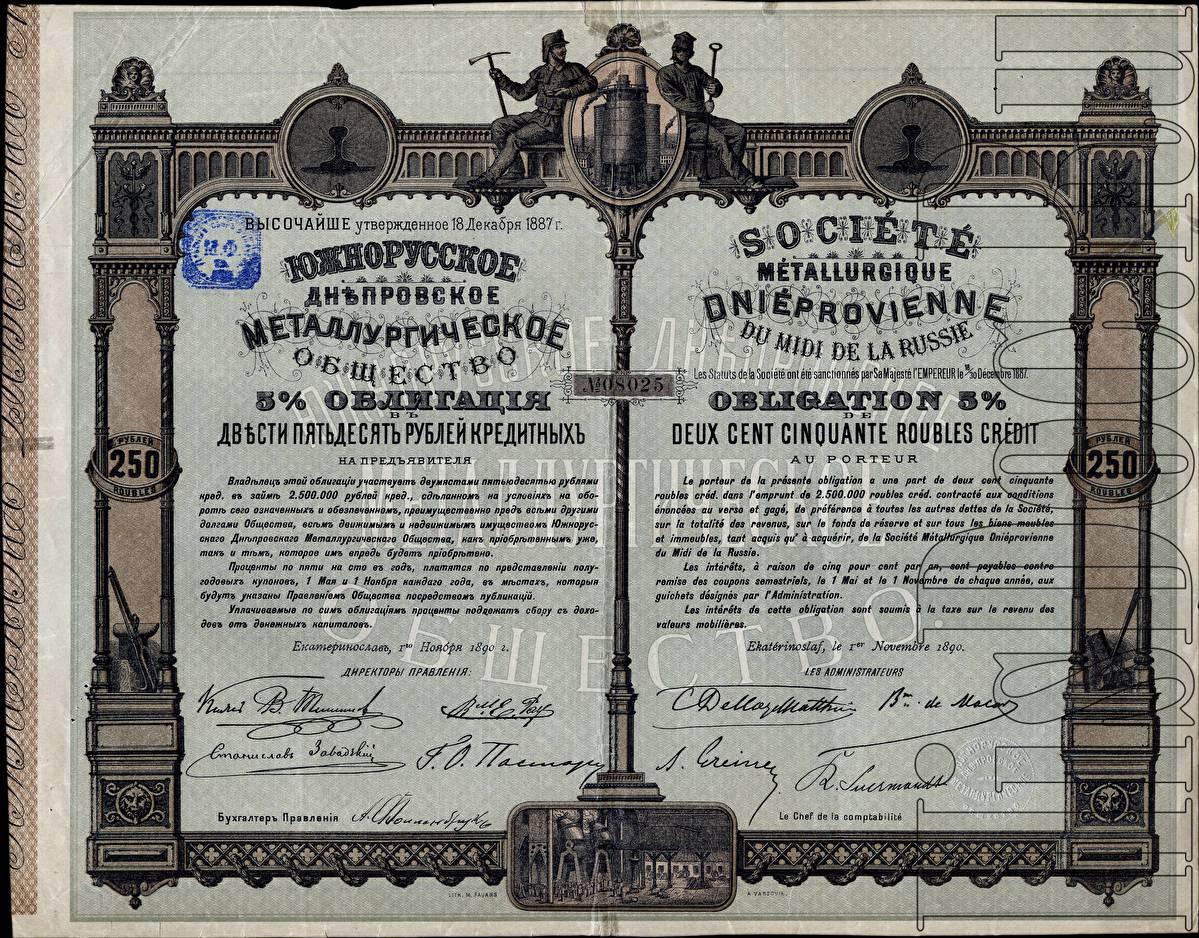 ВЫСОЧАЙШЕ утвержденное 18 Декабря 1887 г.
ЮЖНОРУССКОЕ
ДНѢПРОВСКОЕ
МЕТАЛЛУРГИЧЕСКОЕ
ОБЩЕСТВО
5% ОБЛИГАЦІЯ
ВЪ
ДВѢСТИ ПЯТЬДЕСЯТЪ РУБЛЕЙ КРЕДИТНЫХЪ
НА ПРЕДЪЯВИТЕЛЯ
Владѣлец этой облигаціи участвует двумястами пятьюдесятью рублями
кред. в займѣ 2.500.000 рублей кред., сдѣланном на условіях на обо-
ротѣ сего означенных и обезпеченном, преимущественно пред всѣми другими
долгами Общества, всѣм движимым и недвижимым имуществом Южнорус-
скаго Днѣпровскаго Металлургическаго Общества, как пріобрѣтенным уже,
так и тѣм, которое им впредь будет пріобрѣтено.
Проценты по пяти на сто в год, платятся по представленіи полу-
годовых купонов, 1 Мая и 1 Ноября каждаго года, в мѣстах, которыя
будут указаны Правленіем Общества посредством публикацій.
Уплачиваемые по сим облигаціям проценты подлежат сбору с дохо-
дов от денежных капиталов.
Екатеринослав, 1го Ноября 1890 г.
ДИРЕКТОРЫ ПРАВЛЕНІЯ:
Станислав Завадскій
Бухгалтер Правленія
№08025
SOCIÉTÉ
MÉTALLURGIQUE
DNIÉPROVIENNE
DU MIDI DE LA RUSSIE
Les Statuts de la Société ont été sanctionnés par Sa Majesté l'EMPEREUR le 18/30 Décembre 1887.
OBLIGATION 5%
DE
DEUX CENT CINQUANTE ROUBLES CRÉDIT
AU PORTEUR
Le porteur de la présente obligation a une part de deux cent cinquante
roubles créd. dans l'emprunt de 2.500.000 roubles créd. contracté aux conditions
énoncées au verso et gagé, de préférence à toutes les autres dettes de la Société,
sur la totalité des revenus, sur le fonds de réserve et sur tous les biens meubles
et immeubles, tant acquis qu' à acquérir, de la Société Métallurgique Dniéprovienne
du Midi de la Russie.
Les intérêts, à raison de cinq pour cent par an, sont payables contre
remise des coupons semestriels, le 1 Mai et le 1 Novembre de chaque année, aux
guichets désignés par l'Administration.
Les intérêts de cette obligation sont soumis à la taxe sur le revenu des
valeurs mobilières.
Ekatérinoslaf, le 1er Novembre 1890.
LES ADMINISTRATEURS
Le Chef de la comptabilité
РУБЛЕЙ
250
ROUBLES
РУБЛЕЙ
250
ROUBLES
ЮЖНОРУССКОЕ ДНѢПРОВСКОЕ
МЕТАЛЛУРГИЧЕСКОЕ
ОБЩЕСТВО.
LITH. M. FAJANS
A VARSOVIE.